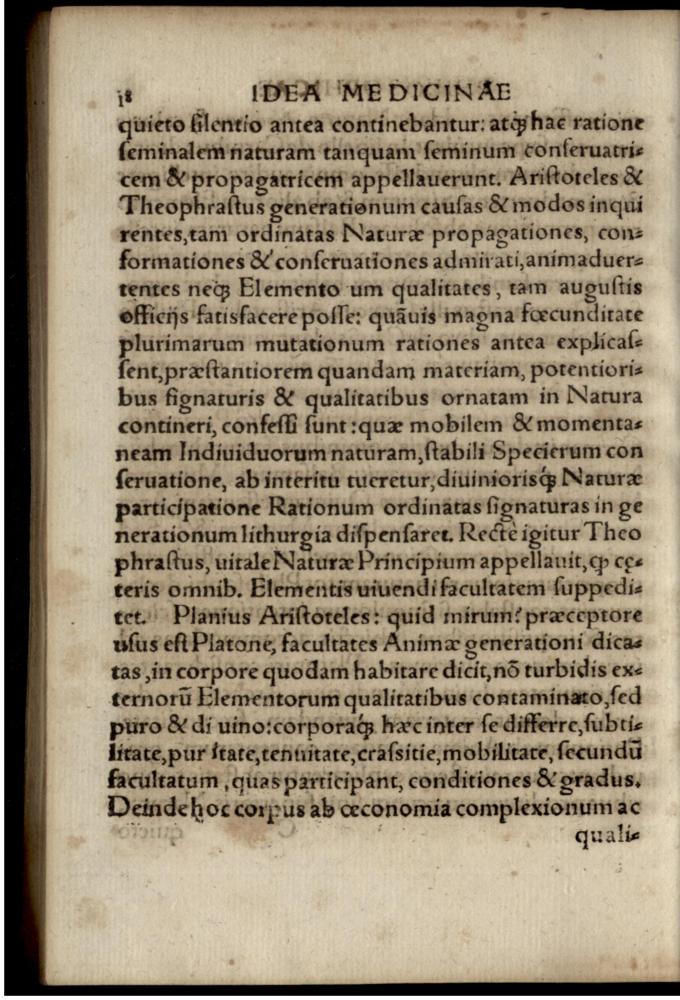 18 IDEA MEDICINAE
quieto ſilentio antea continebantur: atq́ꝫ hac ratione
ſeminalem naturam tanquam ſeminum conſeruatri⸗
cem & propagatricem appellauerunt. Ariſtoteles &
Theophraſtus generationum cauſas & modos inqui
rentes, tam ordinatas Naturæ propagationes, con⸗
formationes & conſeruationes admirati, animaduer⸗
tentes neqꝫ Elemento um qualitates, tam auguſtis
officijs ſatisfacere poſſe: quãuis magna fœcunditate
plurimarum mutationum rationes antea explicaſ⸗
ſent, præſtantiorem quandam materiam, potentiori⸗
bus ſignaturis & qualitatibus ornatam in Natura
contineri, confeſſi ſunt: quæ mobilem & momenta⸗
neam Indiuiduorum naturam, ſtabili Specierum con
ſeruatione, ab interitu tueretur, diuiniorisq́ꝫ Naturæ
participatione Rationum ordinatas ſignaturas in ge
nerationum lithurgia diſpenſaret. Rectè igitur Theo
phraſtus, uitale Naturæ Principium appellauit, ꝙ cę⸗
teris omnib. Elementis uiuendi facultatem ſuppedi⸗
tet. Planius Ariſtoteles: quid mirum? præceptore
uſus eſt Platone, facultates Animæ generationi dica⸗
tas, in corpore quodam habitare dicit, nõ turbidis ex⸗
ternorũ Elementorum qualitatibus contaminato, ſed
puro & di uino: corporaq́ꝫ hæc inter ſe differre, ſubti⸗
litate, pur itate, tenuitate, craſſitie, mobilitate, ſecundũ
facultatum, quas participant, conditiones & gradus.
Deinde hoc corpus ab œconomia complexionum ac
quali⸗